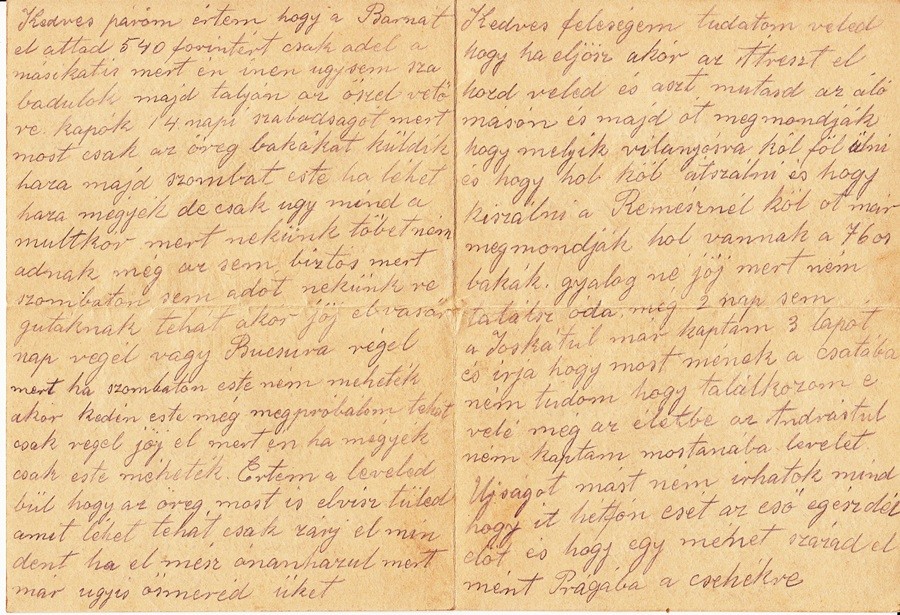 Kedves párom értem hogy a Barnát
el attad 540 forintért csak adel a
másikatis mert én inen ugysem sza
badulok majd talján az öszel vető
re kapók 14 napi szabadságot mert
most csak az öreg bakákat küldik
haza majd szombat este ha léhet
haza mégyék de csak ugy mind a
multkor mert nekünk többet nem
adnak még az sem biztos mert
szombaton sem adot nekünk re
gutáknak tehát akor jöj el vasár
nap végél vagy Bucsura régel
mert ha szombaton este nem mehéték
akor kedin este még megpróbálom tehát
csak régel jöj el mert én ha mégyék
csak este méhéték. Értem a leveled
bül hogy az öreg most is elvisz tüled
amit léhet tehát csak zarj el min
dent ha el mész ónanhazul mert
már ugyis ösmeréd üket
Kedves feleségem tudatom veled
hogy ha eljösz akor az Atreszt el
hozd veled és aszt mutasd az áló
máson és majd ót megmondják
hogy melyik vilanyosra köl föl ülni
és hogy hol köl átszálni és hogy
kiszálni a Remésznél köl ót már
megmondják hol vannak a 76 os
bakák. gyalog né jöj mert ném
találsz oda még 2 nap sem
a Joskátul már kaptam 3 lapot
és irja hogy most mének a csatába
ném tudom hogy találkozom e
velé még az életbe az Andrástul
ném kaptam mostanába levelet
Ujságot mást nem irhatok mind
hogy it hétfőn esét az eső egészdél
elöt és hogy egy méhet század el
mént Prágába a csehékre